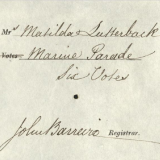 Mrs Matilda Lutterback
Votes Marine Parade
Six Votes
John Barreiro Registrar.